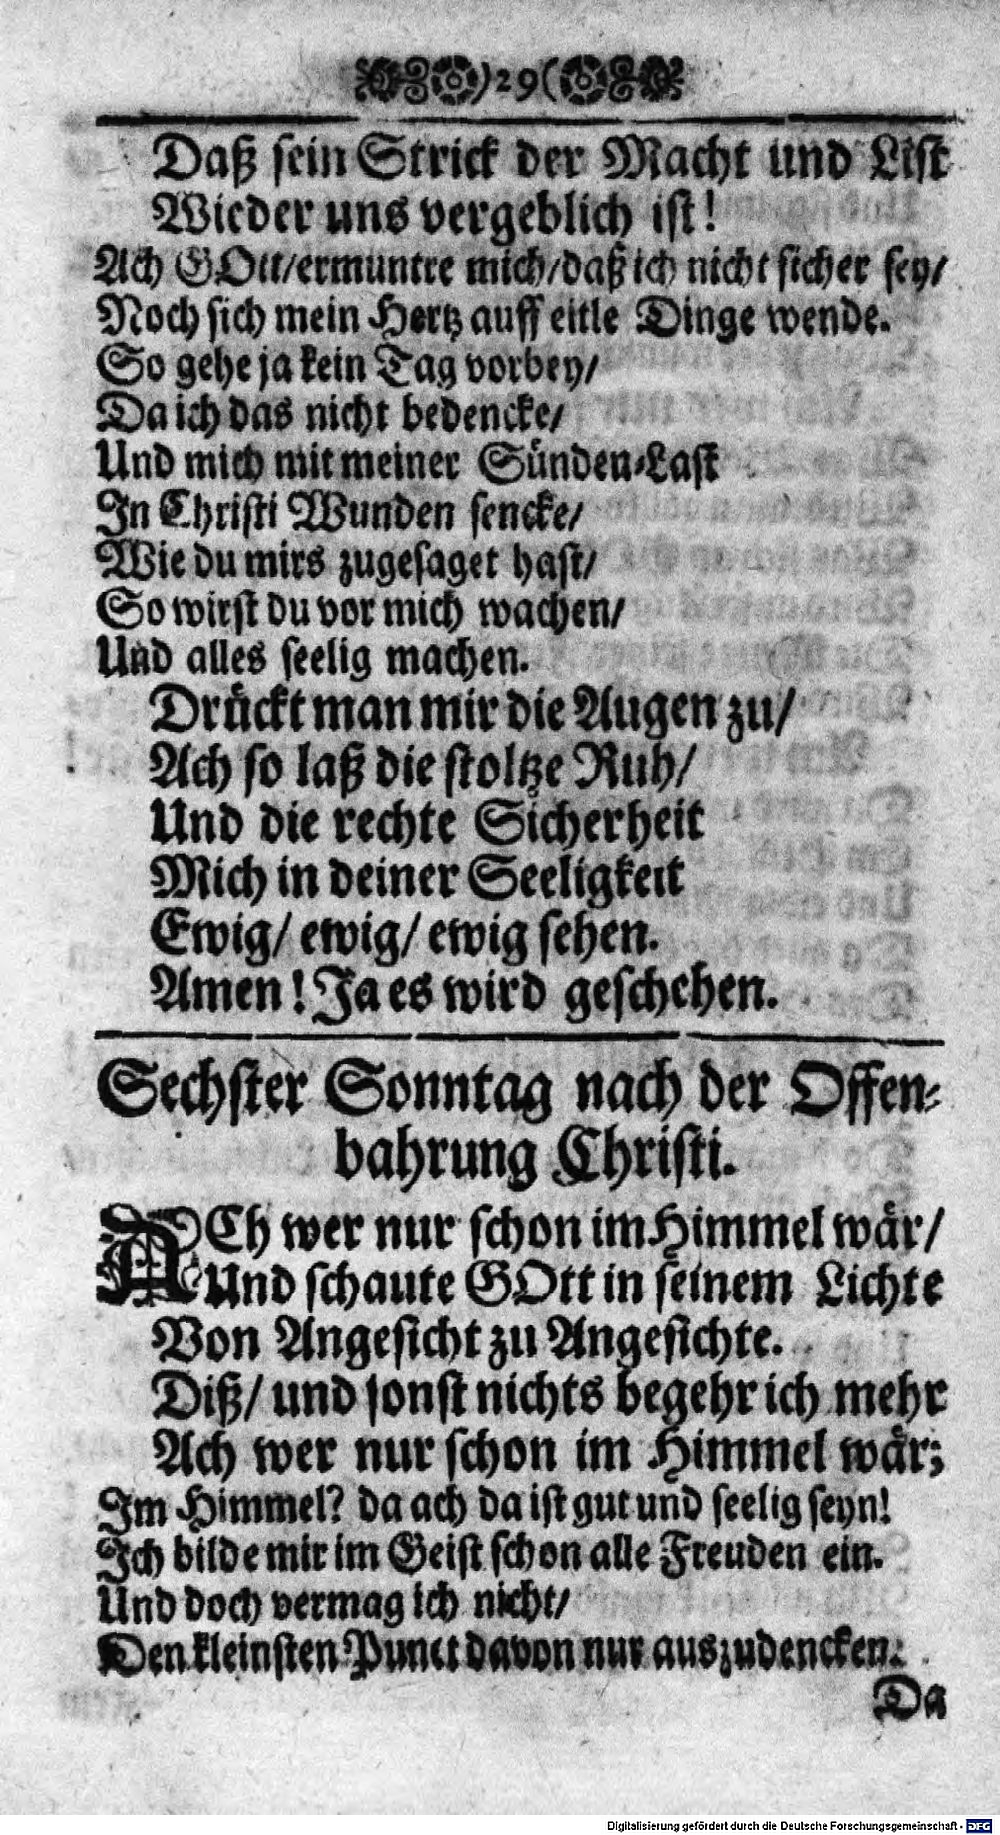 )29(
Daß sein Strick der Macht und List
Wieder uns vergeblich ist!
Ach GOtt/ermuntre mich/daß ich nicht sicher sey/
Noch sich mein Hertz auff eitle Dinge wende.
So gehe ja kein Tag vorbey/
Da ich das nicht bedencke/
Und mich mit meiner Sünden-Last
In Christi Wunden sencke/
Wie du mirs zugesaget hast/
So wirst du vor mich wachen/
Und alles seelig machen.
Drückt man mir die Augen zu/
Ach so laß die stoltze Ruh/
Und die rechte Sicherheit
Mich in deiner Seeligkeit
Ewig/ ewig/ ewig sehen.
Amen! Ja es wird geschehen.
Sechster Sonntag nach der Offen-
bahrung Christi.
ACh wer nur schon im Himmel wär/
Und schaute GOtt in seinem Lichte
Von Angesicht zu Angesichte.
Diß/ und sonst nichts begehr ich mehr
Ach wer nur schon im Himmel wär;
Im Himmel? da ach da ist gut und seelig seyn!
Ich bilde mir im Geist schon alle Freuden ein.
Und doch vermag ich nicht/
Den kleinsten Punct davon nur auszudencken.
Da
Digitalisierung gefördert durch die Deutsche Forschungsgemeinschaft - DFG